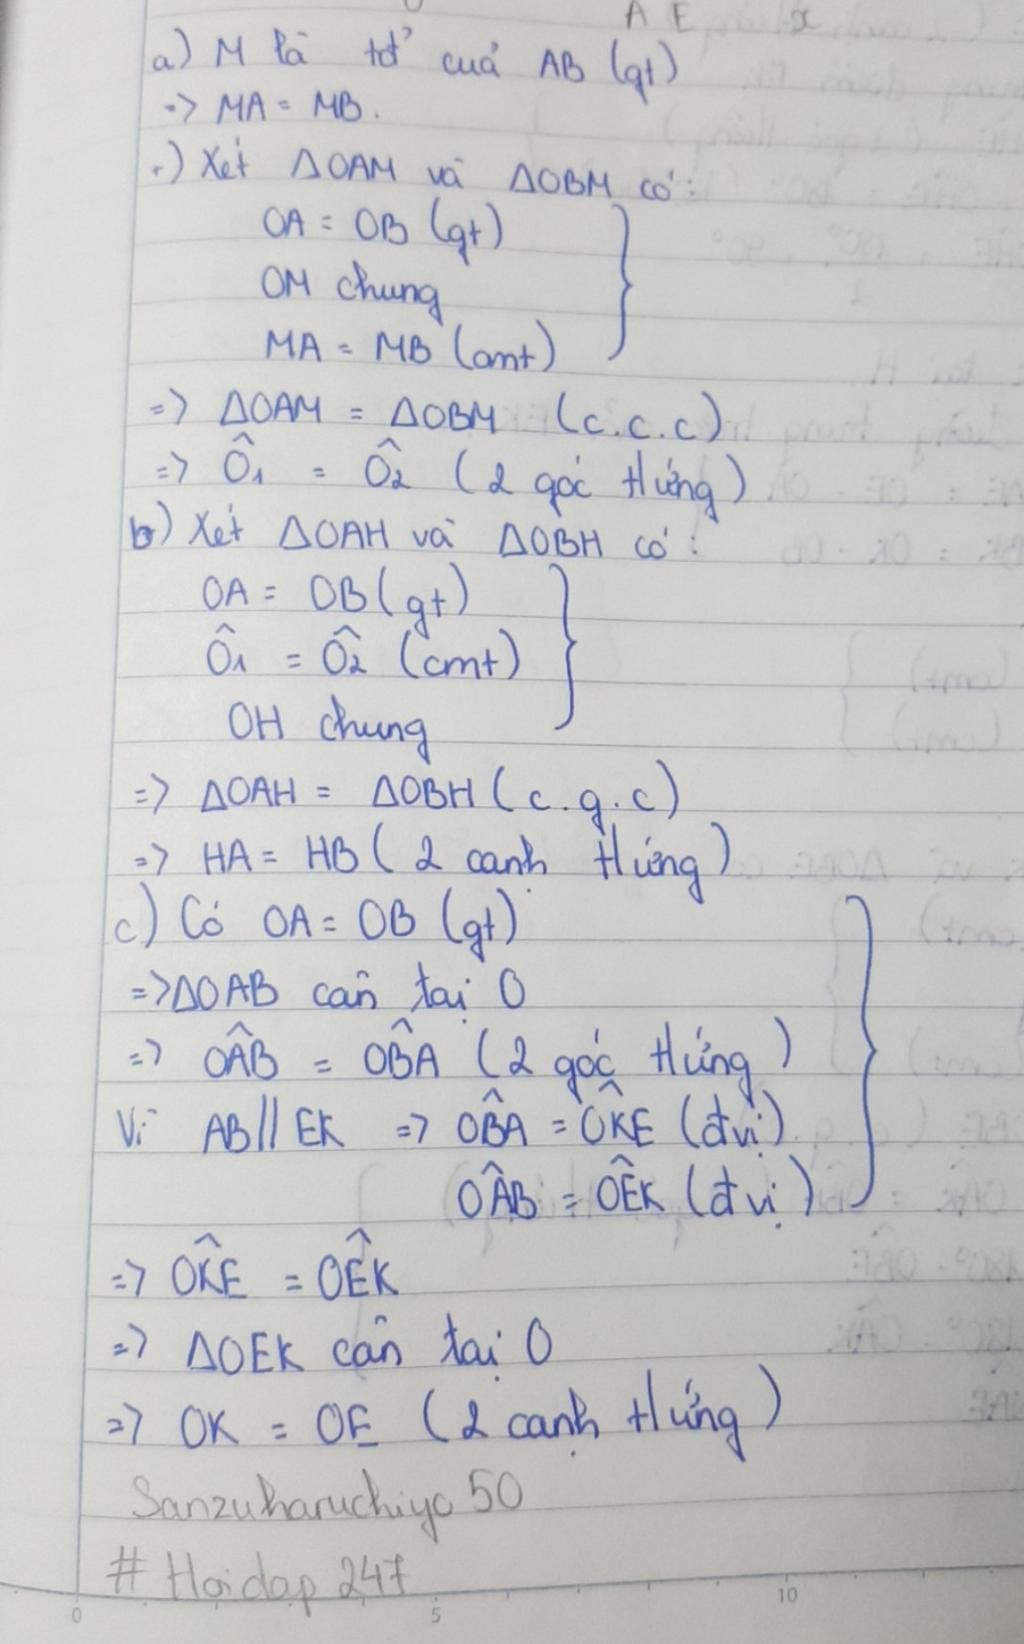 A E x
a) M là tđ' cuả AB (gt)
=> MA = MB.
+) Xét ΔOAM và ΔOBM có:
OA = OB (gt)
OM chung
MA = MB (cmt)
=> ΔOAM = ΔOBM (c.c.c)
=> Ô1 = Ô2 (2 góc tứng)
b) Xét ΔOAH và ΔOBH có:
OA = OB (gt)
Ô1 = Ô2 (cmt)
OH chung
=> ΔOAH = ΔOBH (c.g.c)
=> HA = HB (2 canh tứng)
c) Có OA = OB (gt)
=> ΔOAB cân tại O
=> OÂB = OB̂A (2 góc tứng)
Vì AB // EK => OB̂A = OK̂E (đvị)
OÂB = OÊK (đvị)
=> OK̂E = OÊK
=> ΔOEK cân tại O
=> OK = OE (2 cạnh tứng)
Sanzuharuchiyo 50
# Hoidap 247
0 5 10